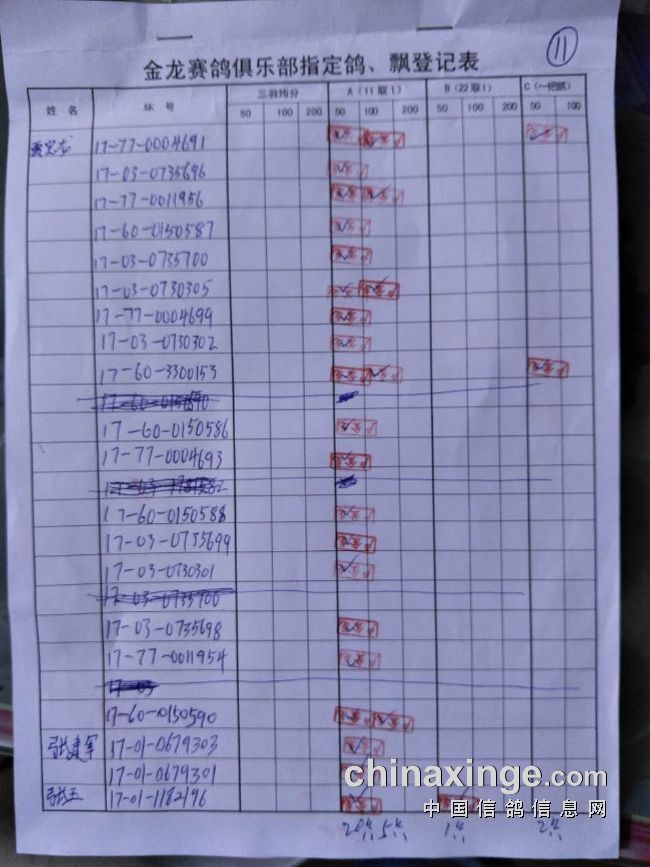 11
金龙赛鸽俱乐部指定鸽、飘登记表
姓名 环号 三羽均分 A（11取1） B（22取1） C（一把抓）
50 100 200 50 100 200 50 100 200 50 100
17-77-0004691
17-03-0735696
17-77-0011956
17-60-0150587
17-03-0735700
17-03-0730305
17-77-0004699
17-03-0730302
17-60-3300153
17-60-0150586
17-77-0004693
17-60-0150588
17-03-0735694
17-03-0730301
17-03-0735700
17-03-0735698
17-77-0011954
17-03
17-60-0150590
张建军 17-01-0679303
17-01-0679301
张玉 17-01-1182196
20只 5只 1只 2只
chinaxinge.com
中国信鸽信息网